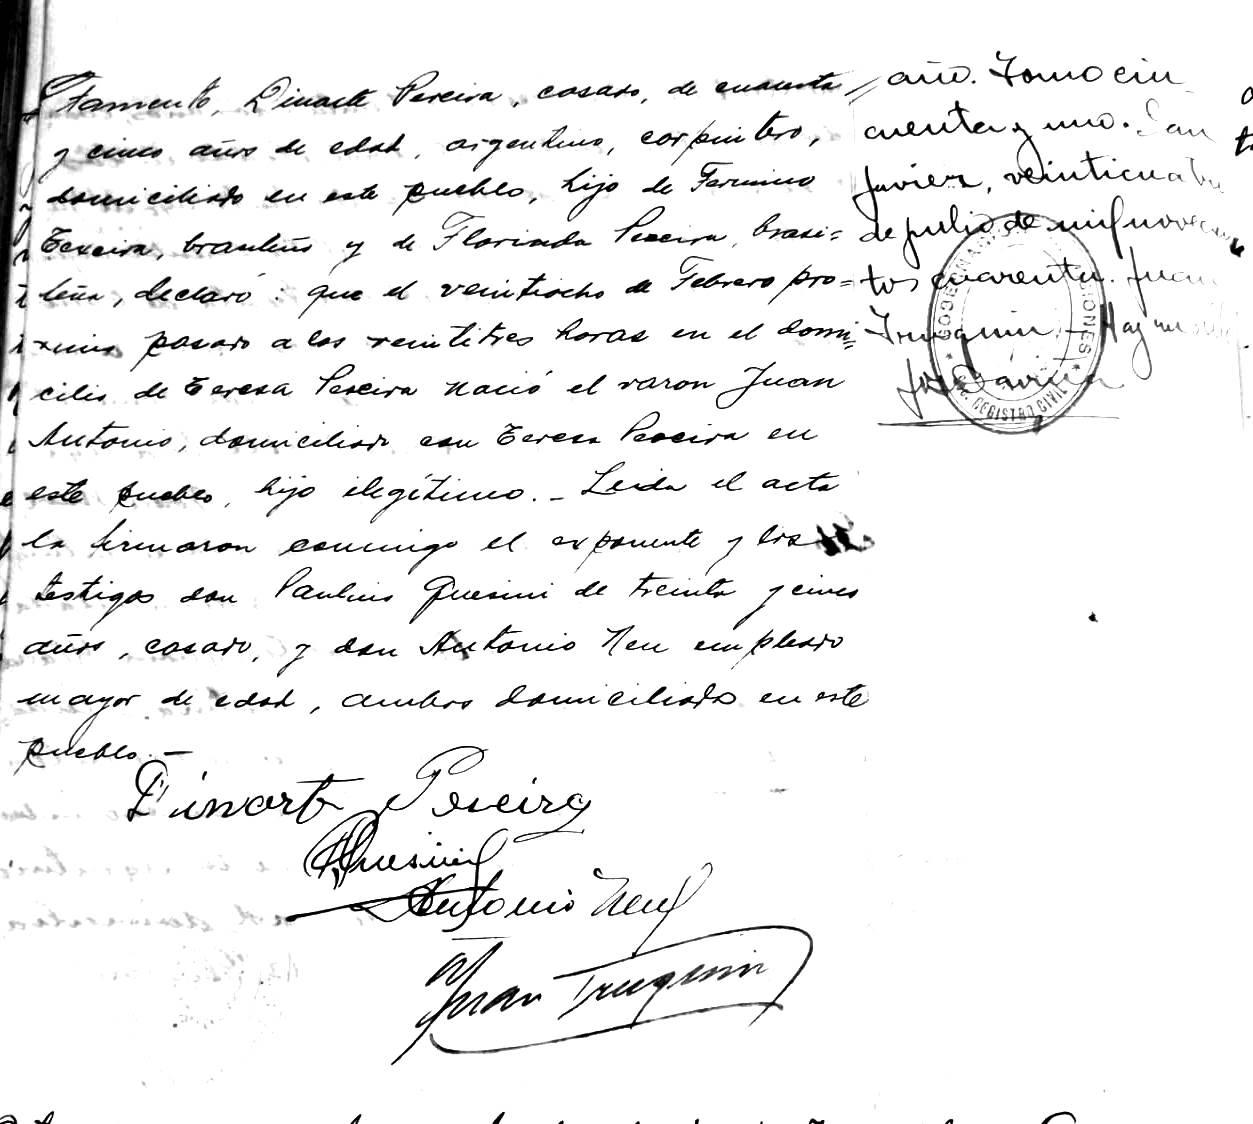 tamento, Dinarte Pereira, casado, de cuarenta
y cinco años de edad, argentino, carpintero,
domiciliado en este pueblo, hijo de Fermino
Pereira, brasileño y de Florinda Pereira, brasi=
leña, declaró: que el veintiocho de Febrero pró=
ximo pasado a las veintitres horas en el domi=
cilio de Teresa Pereira nació el varon Juan
Antonio, domiciliado con Teresa Pereira en
este pueblo, hijo ilegítimo. - Leida el acta
la firmaron conmigo el exponente y los
testigos don Paulino Quesini de treinta y cinco
años, casado, y don Antonio Neu empleado
mayor de edad, ambos domiciliados en este
pueblo. -
Dinarte Pereira
Quesini
Antonio Neu
Juan Truquin
año. Tomo cin
cuenta y uno. San
Javier, veinticuatro
de julio de mil novecien
tos cuarenta. Juan
Truquin - Hay un
REGISTRO CIVIL